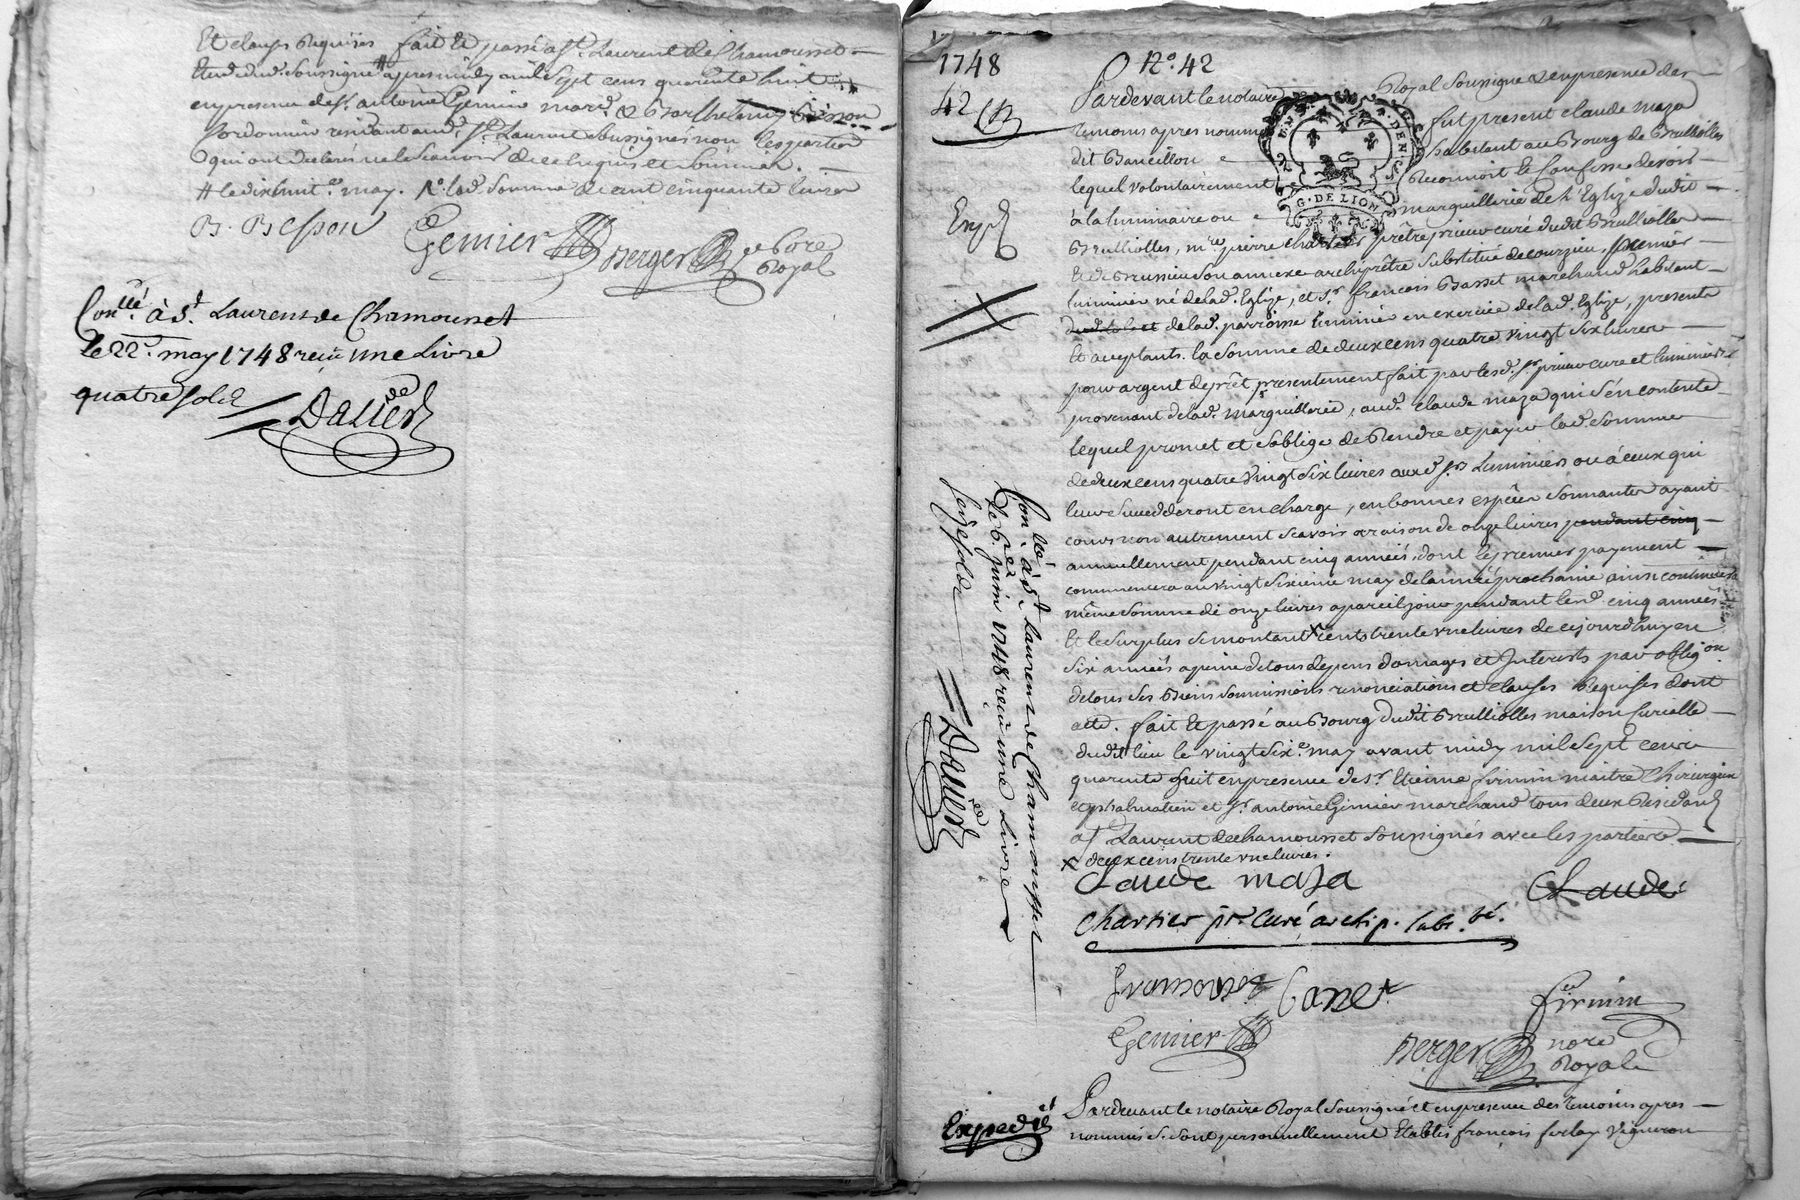 Et clauses Requises fait et passé a St. Laurent de Chamousset
Etude dud. soussigné # apres midy mil sept cens quarante huit
en presence de sr. antoine Gemier mard. & Barthelemy
Cordonnier residant aud. St. Laurent soussignés non les parties
qui ont declarés ne le scavoir de ce enquis et sommés.
# le dix huit e. may. la d. somme de cent cinquante livres
B. Besson Gemier Berger nore Royal
Con.llé à St. Laurens de Chamousset
le 22e. may 1748 reçu une Livre
quatre sols
Dallier
1748
42
No. 42
Pardevant le notaire Royal soussigné & en presence des
temoins apres nommés fut present claude maza
dit Baucillon habitant au Bourg de Brulliolles
lequel volontairement Reconnoit et Confesse devoir
à la luminaire ou marguillerie de l'Eglize dudit
Brulliolles, mre. pierre Chartier prêtre prieur curé dudit Brulliolles
Et de Brussieu son annexe archiprêtre substitué de courzieu, premier
luminier né de lad. Eglize, et sr. francois Basset marchand habitant
de lad. parroisse luminier en exercice de lad. Eglize, presents
Et acceptants. la somme de deux cens quatre vingt six livres
pour argent de prêt presentement fait par lesd. srs. prieur curé et luminier
provenant de lad. marguillerie, aud. claude maza qui s'en contente
lequel promet et s'oblige de Rendre et payer lad. somme
de deux cens quatre vingt six livres auxd. srs. Luminiers ou à ceux qui
leur succedderont en charge, en bonnes espêces sonnantes ayant
cours non autrement scavoir a raison de onze livres pendant cinq
annuellement pendant cinq années, dont le premier payement
commencera au vingt sixieme may de l'année prochaine ainsi continuer
même somme de onze livres a pareil jour pendant lesd. cinq années
Et le surplus se montant x cents trente une livres de ce jourd'huy en
six années a peine de tous depens domages et Interests par obligon.
de tous ses Biens soumissions renonciations et clauses Requises dont
acte. fait et passé au Bourg dudit Brulliolles maison Curialle
dudit lieu le vingt sixe. may avant midy mil sept cens
quarante huit en presence de sr. Etienne firmin maitre Chirurgien
et sr. antoine Gimier marchand tous deux Residants
a St. Laurent de chamousset soussignés avec les parties
x deux cens trente une livres.
Claude maza Claude
Chartier pr. Curé archip. subst.
francois Basset
firmin
Gemier
Berger nore Royal
Exp.
Con.llé à St. Laurent de Chamousset
le 6e. juin 1748 reçu une Livre
seize sols
Dallier
Expedié
Pardevant le notaire Royal soussigné et en presence des temoins apres
nommés se. sont personnellement Etablis françois ferlay vigneron